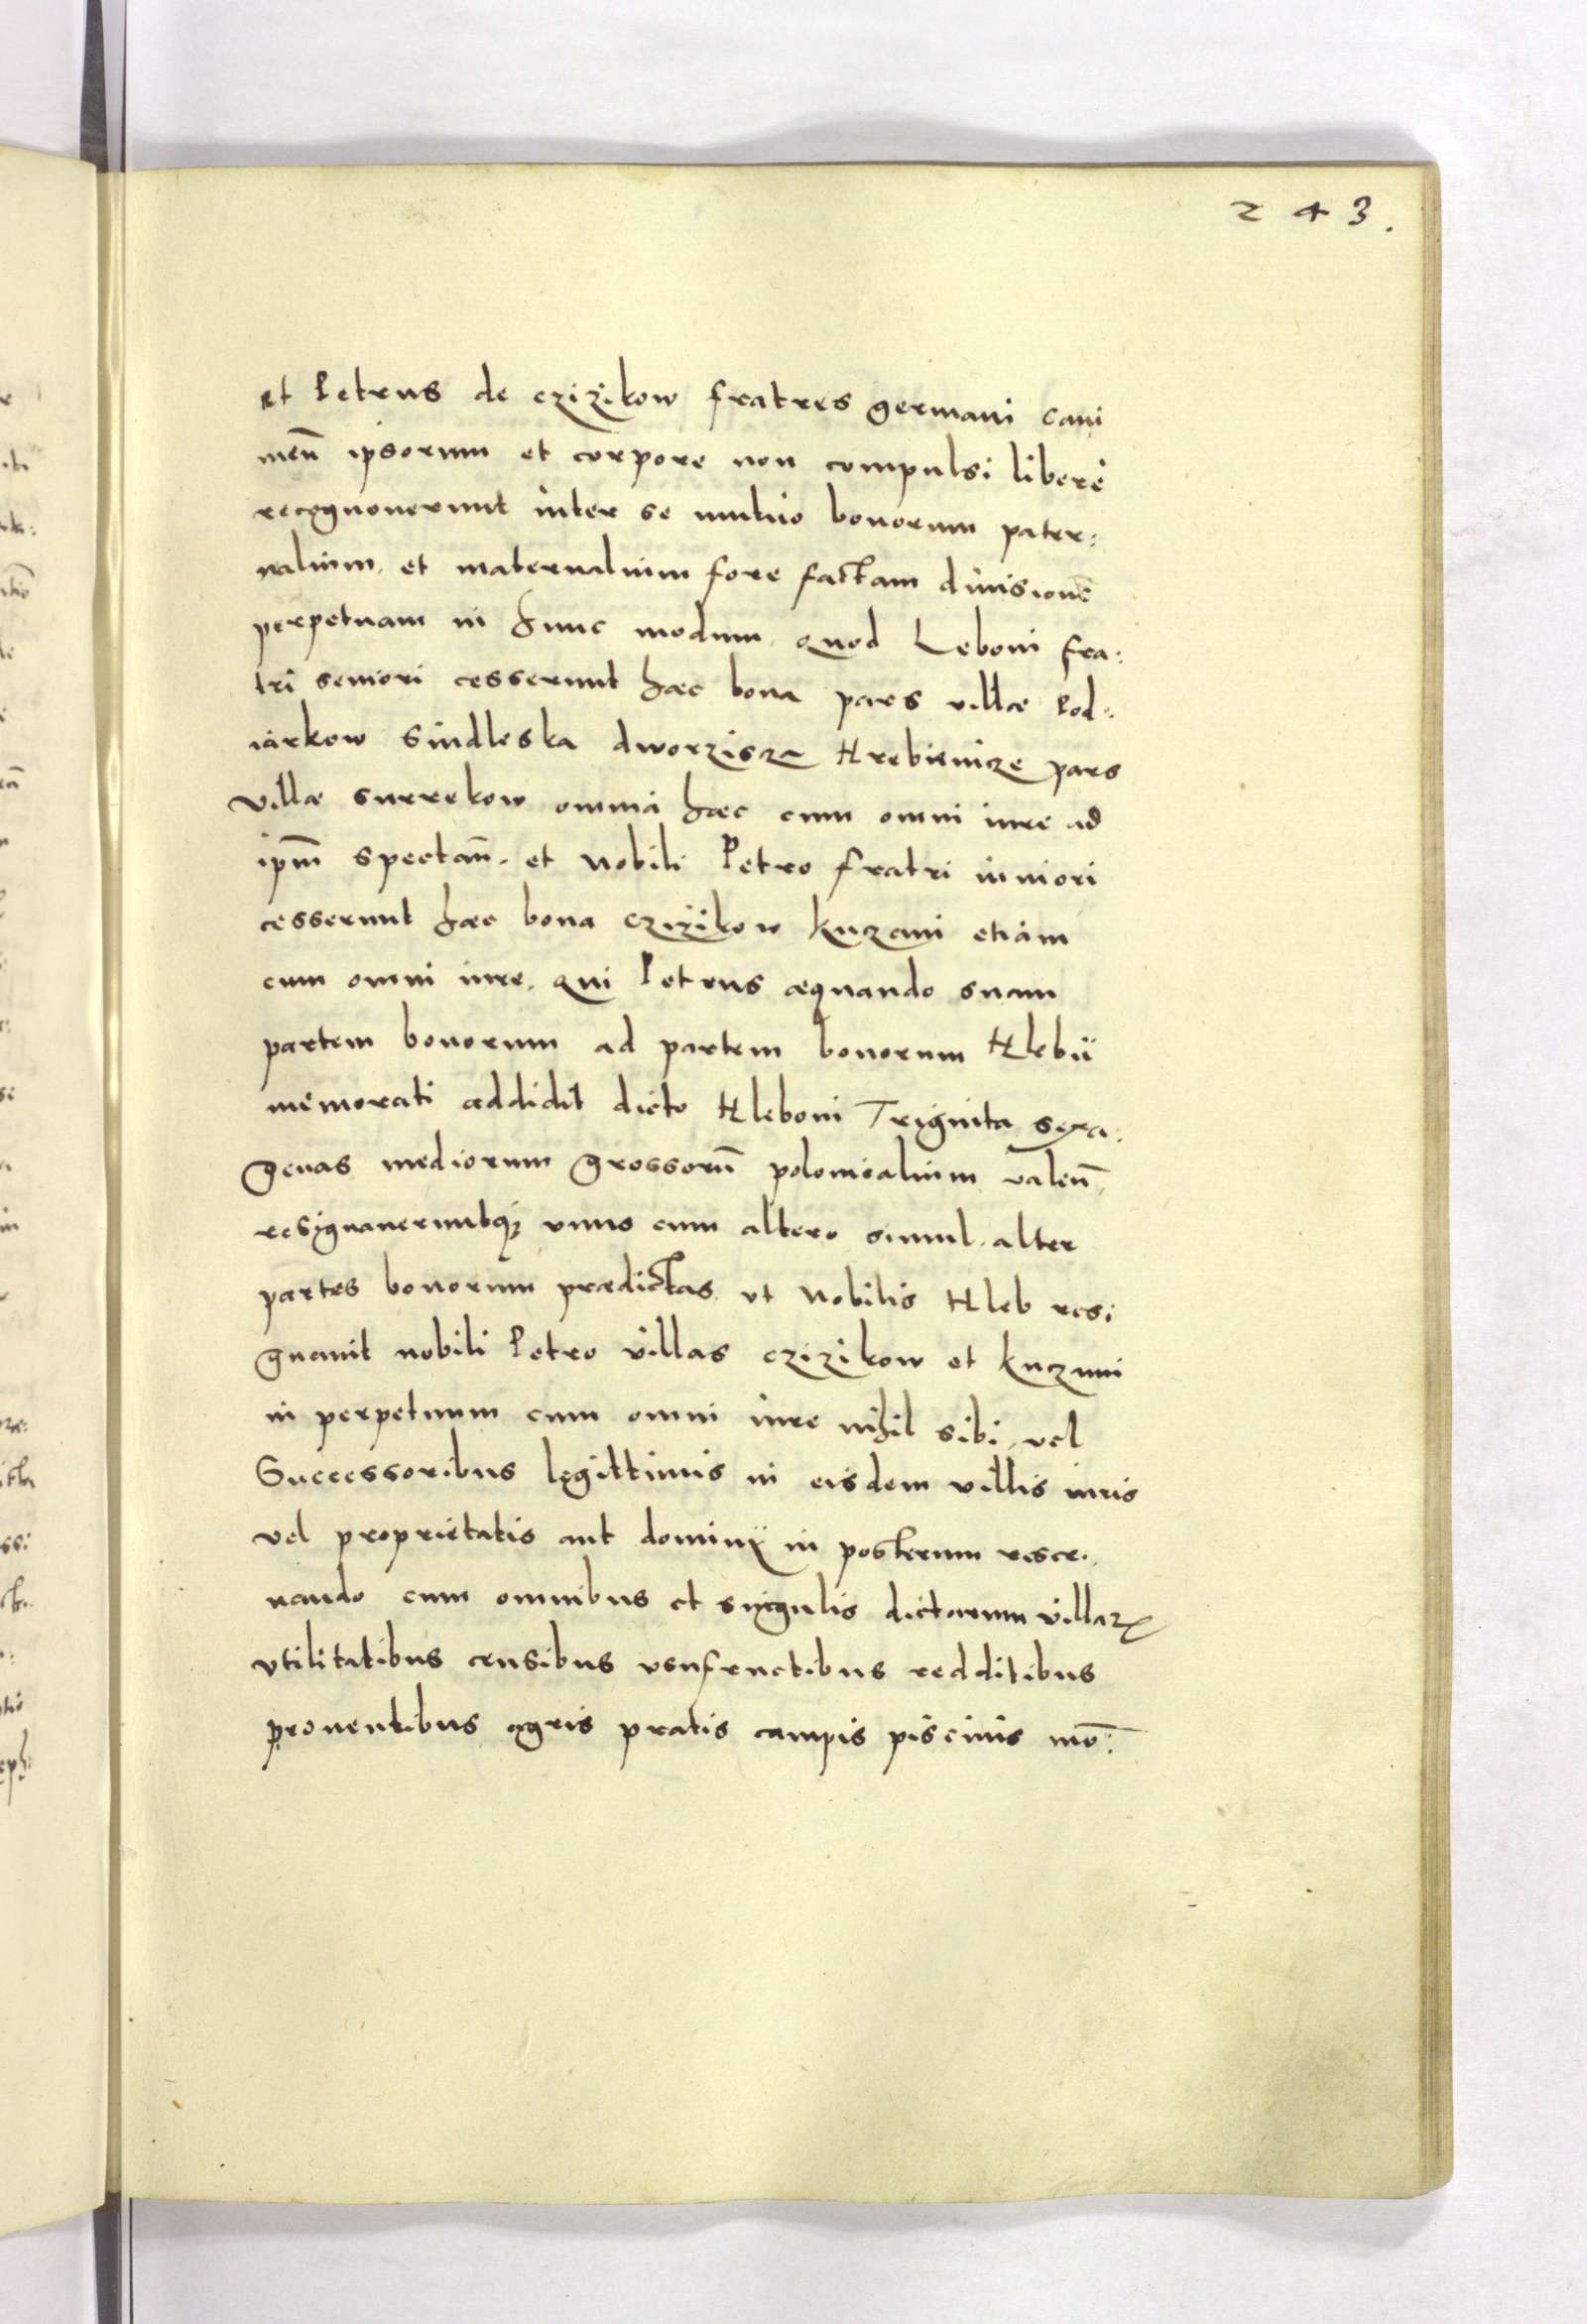 243.
et Petrus de Czizikow fratres germani sani
meñ ipsorum et corpore non compulsi libere
recognouerunt inter se mutuo bonorum pater:
nalium, et maternalium fore factam diuisionẽ
perpetuam in hunc modum, quod Leboni fra:
tri seniori cesserunt hæc bona pars villæ Pod:
iarkow Sindleska dworzisza Hrebienicze pars
Villæ Surrekow omnia hæc cum omni iure ad
ipm̃ spectañ. et Nobili Petro fratri iuniori
cesserunt hæc bona Czizikow Kuczani etiam
cum omni iure, qui Petrus æquando suam
partem bonorum ad partem bonorum Hlebii
memorati addidit dicto Hleboni Triginta sexa:
genas mediorum grossorũ polonicalium valeñ,
resignaueruntq; vnus cum altero simul, alter
partes bonorum prædictas, vt Nobilis Hleb resi
gnauit nobili Petro villas Czizikow et Kuczani
in perpetuum cum omni iure nihil sibi, vel
Successoribus legittimis in eisdem villis iuris
vel proprietatis aut dominij in posterum reser:
uando cum omnibus et singulis dictarum villarꝝ
vtilitatibus censibus vsufructibus redditibus
prouentibus agris pratis campis piscinis mõ: